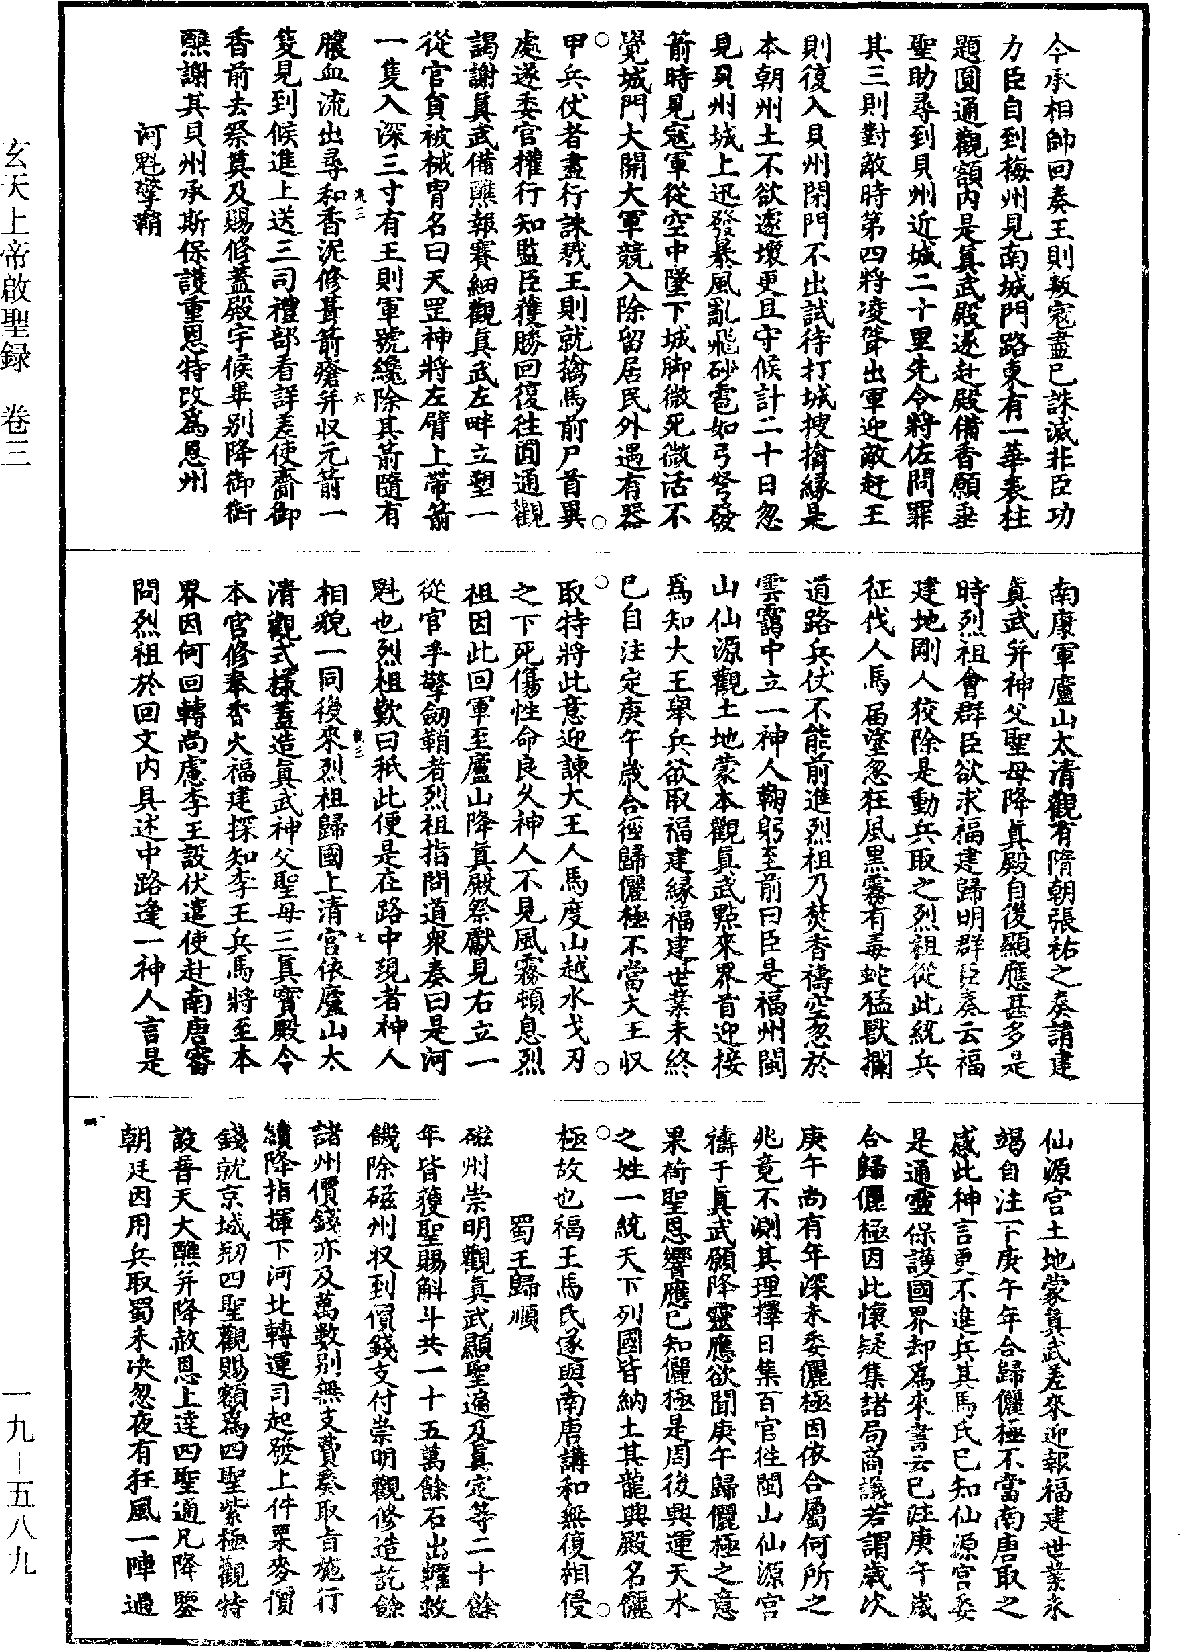 今承相帥回奏王則叛寇盡已誅滅非臣功
力臣自到梅州見南城門路東有一華表柱
題圓通觀額內是真武殿遂赴殿備香願垂
聖助尋到貝州近城二十里先令將佐問罪
其三則對敵時第四將凌聳出軍迎敵趕王
則復入貝州閉門不出試待打城搜擒緣是
本朝州土不欲遽壞更且守候計二十日忽
見貝州城上迅發暴風亂飛砂雹如弓弩發
箭時見寇軍從空中墜下城脚微死微活不
覺城門大開大軍競入除留居民外遇有器
甲兵仗者盡行誅戮王則就擒馬前尸首異
處遂委官權行知監臣獲勝回復往圓通觀
謁謝真武備醮報賽細觀真武左畔立塑一
從官貟被械冑名曰天罡神將左臂上帶箭
一隻入深三寸有王則軍號纔除其箭隨有
膿血流出尋和香泥修葺箭瘡并収元箭一
隻見到候進上送三司禮部看詳差使齎御
香前去祭奠及賜修蓋殿宇候畢別降御銜
醮謝其貝州承斯保護重恩特改為恩州
河魁擎鞘
南康軍廬山太清觀有隋朝張祐之奏請建
真武并神父聖母降真殿自後顯應甚多是
時烈祖會群臣欲求福建歸明群臣奏云福
建地剛人狡除是動兵取之烈祖從此統兵
征伐人馬屆塗忽狂風黑霧有毒蛇猛獸攔
道路兵仗不能前進烈祖乃焚香禱空忽於
雲靄中立一神人鞠躬至前曰臣是福州閩
山仙源觀土地蒙本觀真武點來界首迎接
為知大王舉兵欲取福建緣福建世業未終
已自注定庚午歲合徑歸儷極不當大王収
取特將此意迎諫大王人馬度山越水戈刃
之下死傷性命良久神人不見風霧頓息烈
祖因此回軍至廬山降真殿祭獻見右立一
從官手擎劒鞘者烈祖指問道衆奏曰是河
魁也烈祖歎曰秖此便是在路中現者神人
相貌一同後來烈祖歸國上清宮依廬山太
清觀式樣蓋造真武神父聖母三真寶殿令
本官修奉香火福建探知李王兵馬將至本
界因何回轉尚慮李王設伏遣使赴南唐審
問烈祖於回文內具述中路逢一神人言是
仙源宮土地蒙真武差來迎報福建世業未
竭自注下庚午年合歸儷極不當南唐取之
感此神言更不進兵其馬氏已知仙源宮委
是通靈保護國界却為來書云已注庚午歲
合歸儷極因此懷疑集諸局商議若謂歲次
庚午尚有年深未委儷極因依合屬何所之
兆竟不測其理擇日集百官徃閩山仙源宮
禱于真武願降靈應欲聞庚午歸儷極之意
果荷聖恩響應已知儷極是周後興運天水
之姓一統天下列國皆納土其龍興殿名儷
極故也福王馬氏遂與南唐講和無復相侵
蜀王歸順
磁州崇明觀真武顯聖遍及真定等二十餘
年皆獲聖賜斛斗共一十五萬餘石出糶救
饑除磁州収到價錢支付崇明觀修造訖餘
諸州價錢亦及萬數別無支費奏取旨施行
續降指揮下河北轉運司起發上件粟麥價
錢就京城剏四聖觀賜額為四聖紫極觀特
設普天大醮并降赦恩上達四聖通凡降鑒
朝廷因用兵取蜀未決忽夜有狂風一陣過
玄天上帝啟聖録　卷三
一九—五八九